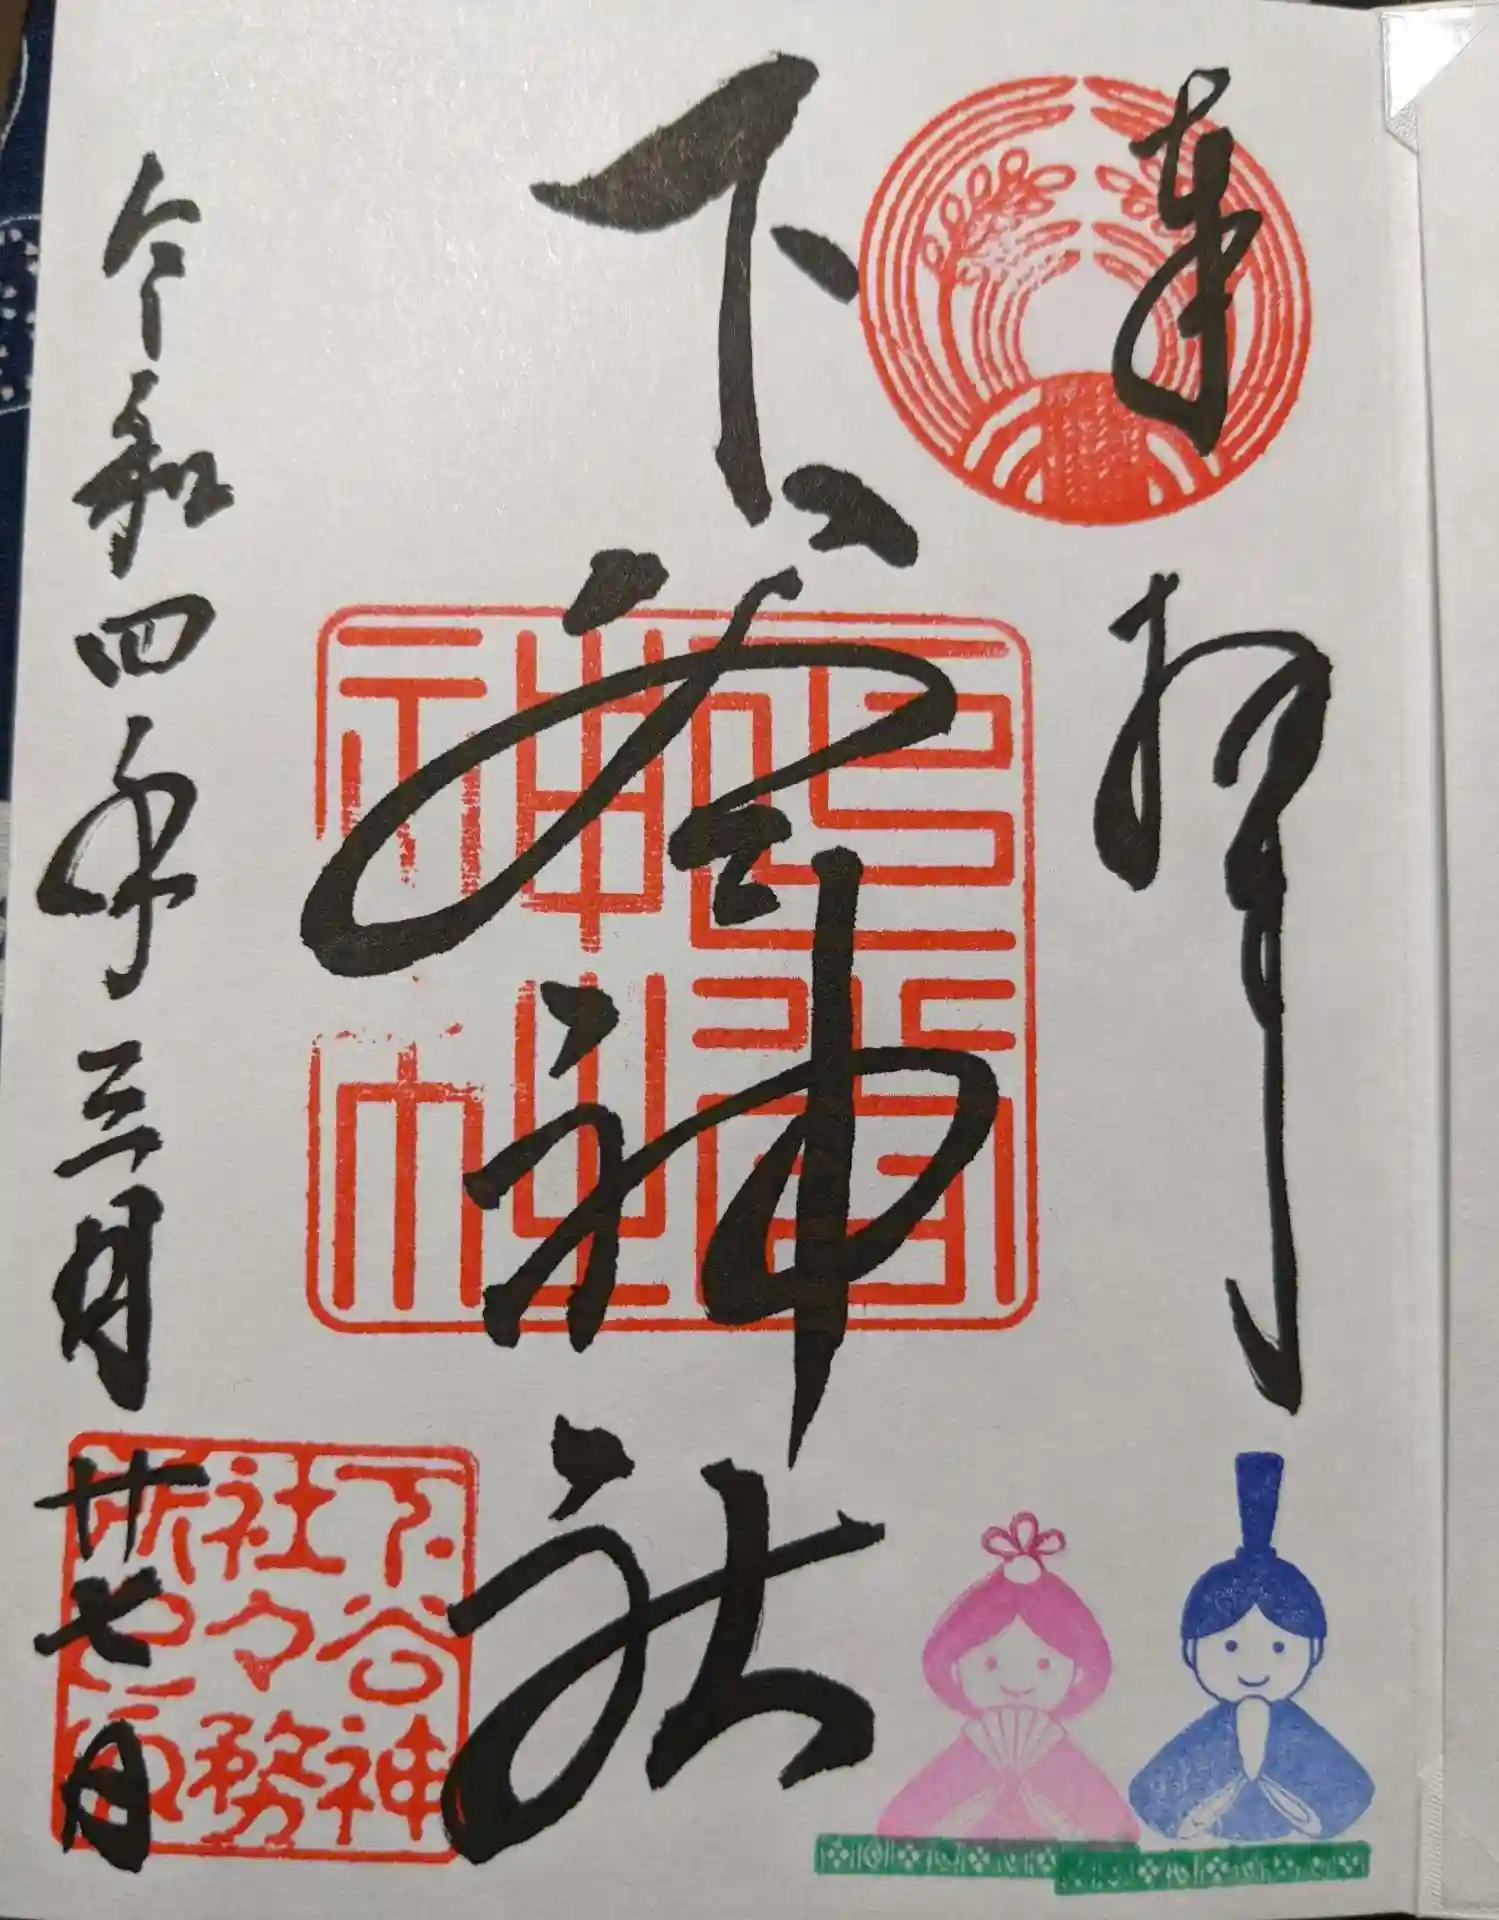 奉拝
下谷神社
令和四年三月廿七日
下谷神
社々務
所之印